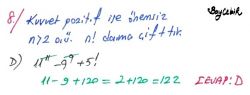 8/ Kuvvet pozitif ise önemsiz
n>2 o.ü. n! daima çifttir.
D) 11¹¹ - 9⁹ + 5!
11 - 9 + 120 = 2 + 120 = 122 CEVAP: D